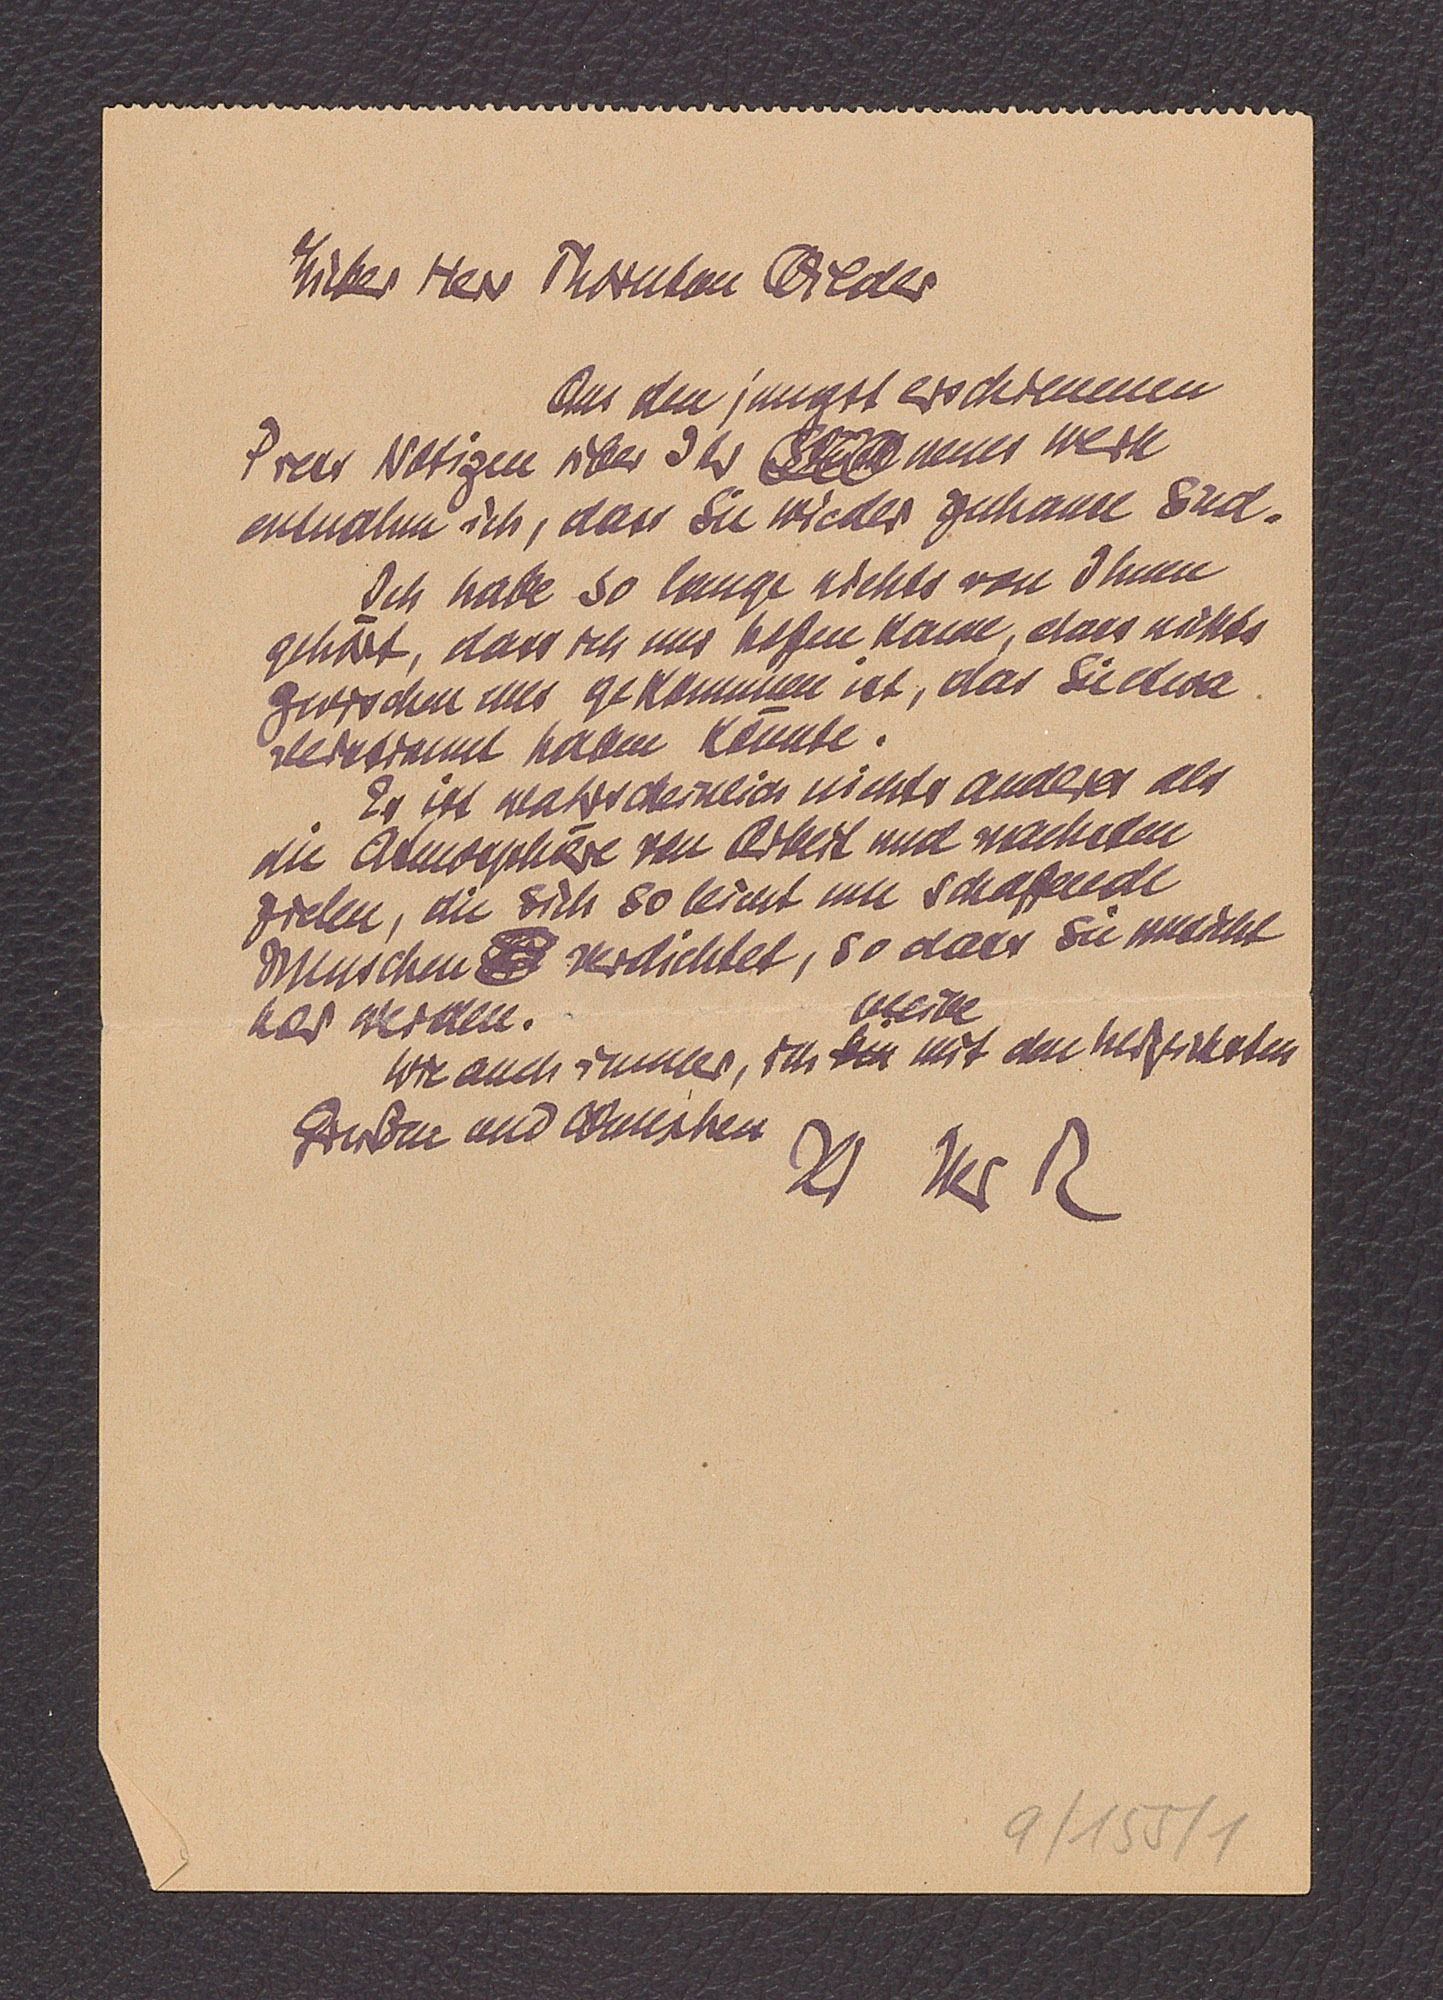 Lieber Herr Thornton Wilder
Aus den jüngst erschienenen
Press Notizen über Ihr neues Werk
entnahm ich, dass Sie wieder zuhause sind.
Ich habe so lange nichts von Ihnen
gehört, dass ich nur hoffen kann, dass nichts
zwischen uns gekommen ist, das Sie etwa
verstimmt haben könnte.
Es ist wahrscheinlich nichts anderes als
die Atmosphäre von Arbeit und nächsten
Zielen, die sich so leicht um schaffende
Menschen verdichtet, so dass sie unsicht
bar werden.
bleibe
Wie auch immer, ich bin mit den herzlichsten
Grüßen und Wünschen
Ihr R
9/155/1